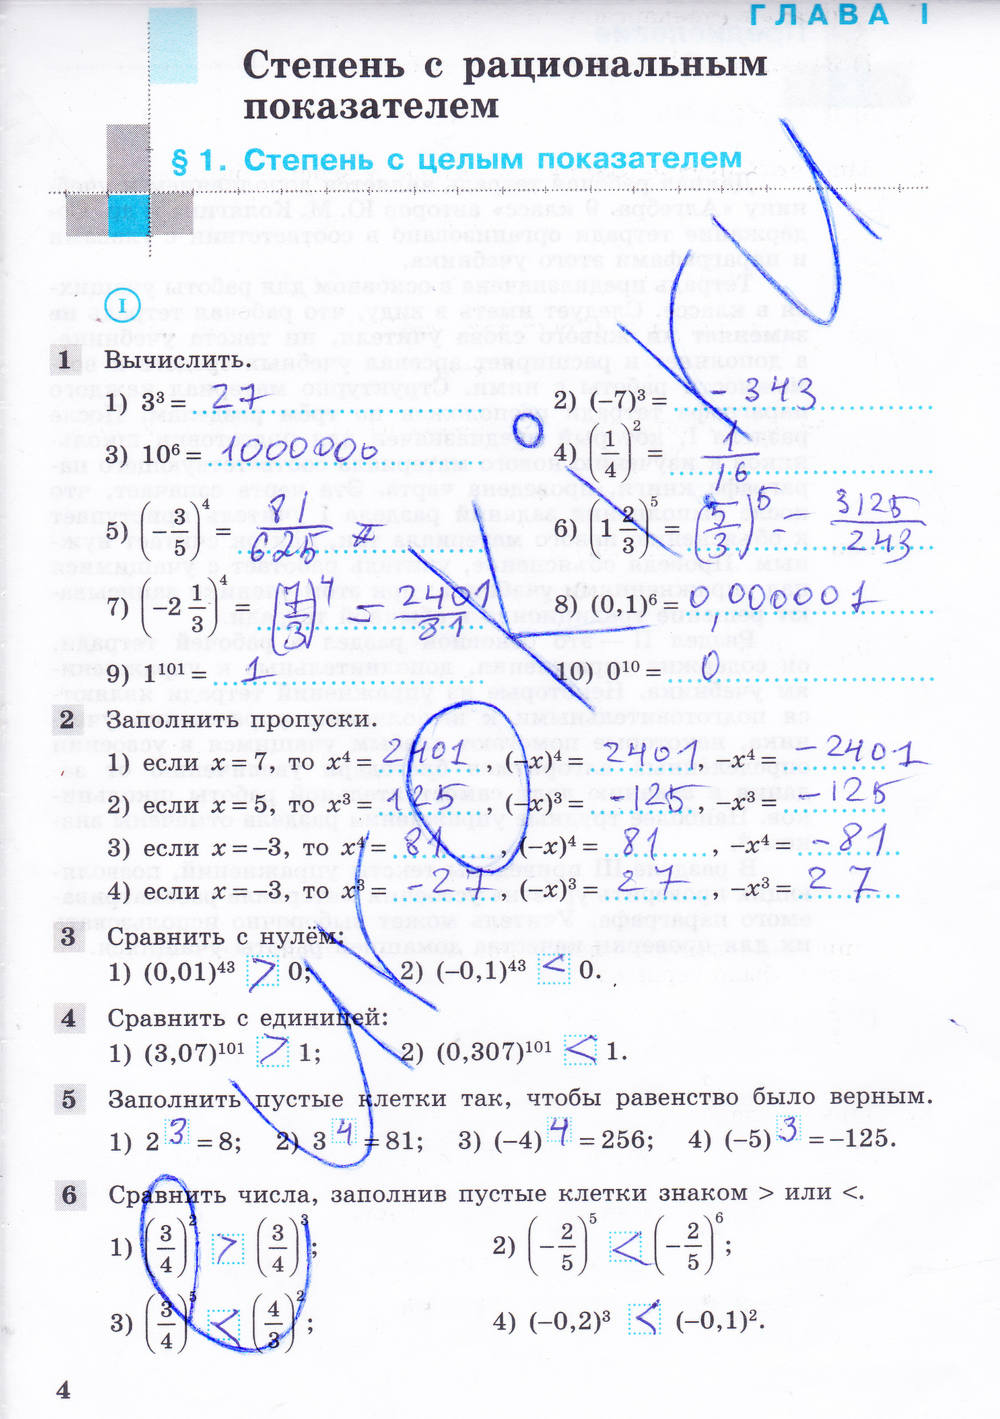 ГЛАВА I
Степень с рациональным
показателем
§ 1. Степень с целым показателем
I
1 Вычислить.
1) 3³ = 27 2) (–7)³ = –343
3) 10⁶ = 1000000 4) (1/4)² = 1/16
5) (–3/5)⁴ = 81/625 6) (1 2/3)⁵ = (5/3)⁵ = 3125/243
7) (–2 1/3)⁴ = (7/3)⁴ = 2401/81 8) (0,1)⁶ = 0000001
9) 1¹⁰¹ = 1 10) 0¹⁰ = 0
2 Заполнить пропуски.
1) если x = 7, то x⁴ = 2401, (–x)⁴ = 2401, –x⁴ = –2401
2) если x = 5, то x³ = 125, (–x)³ = –125, –x³ = –125
3) если x = –3, то x⁴ = 81, (–x)⁴ = 81, –x⁴ = –81
4) если x = –3, то x³ = –27, (–x)³ = 27, –x³ = 27
3 Сравнить с нулём:
1) (0,01)⁴³ > 0; 2) (–0,1)⁴³ < 0.
4 Сравнить с единицей:
1) (3,07)¹⁰¹ > 1; 2) (0,307)¹⁰¹ < 1.
5 Заполнить пустые клетки так, чтобы равенство было верным.
1) 2³ = 8; 2) 3⁴ = 81; 3) (–4)⁴ = 256; 4) (–5)³ = –125.
6 Сравнить числа, заполнив пустые клетки знаком > или <.
1) (3/4)² > (3/4)³; 2) (–2/5)⁵ < (–2/5)⁶;
3) (3/4)⁵ < (4/3)²; 4) (–0,2)³ < (–0,1)².
4